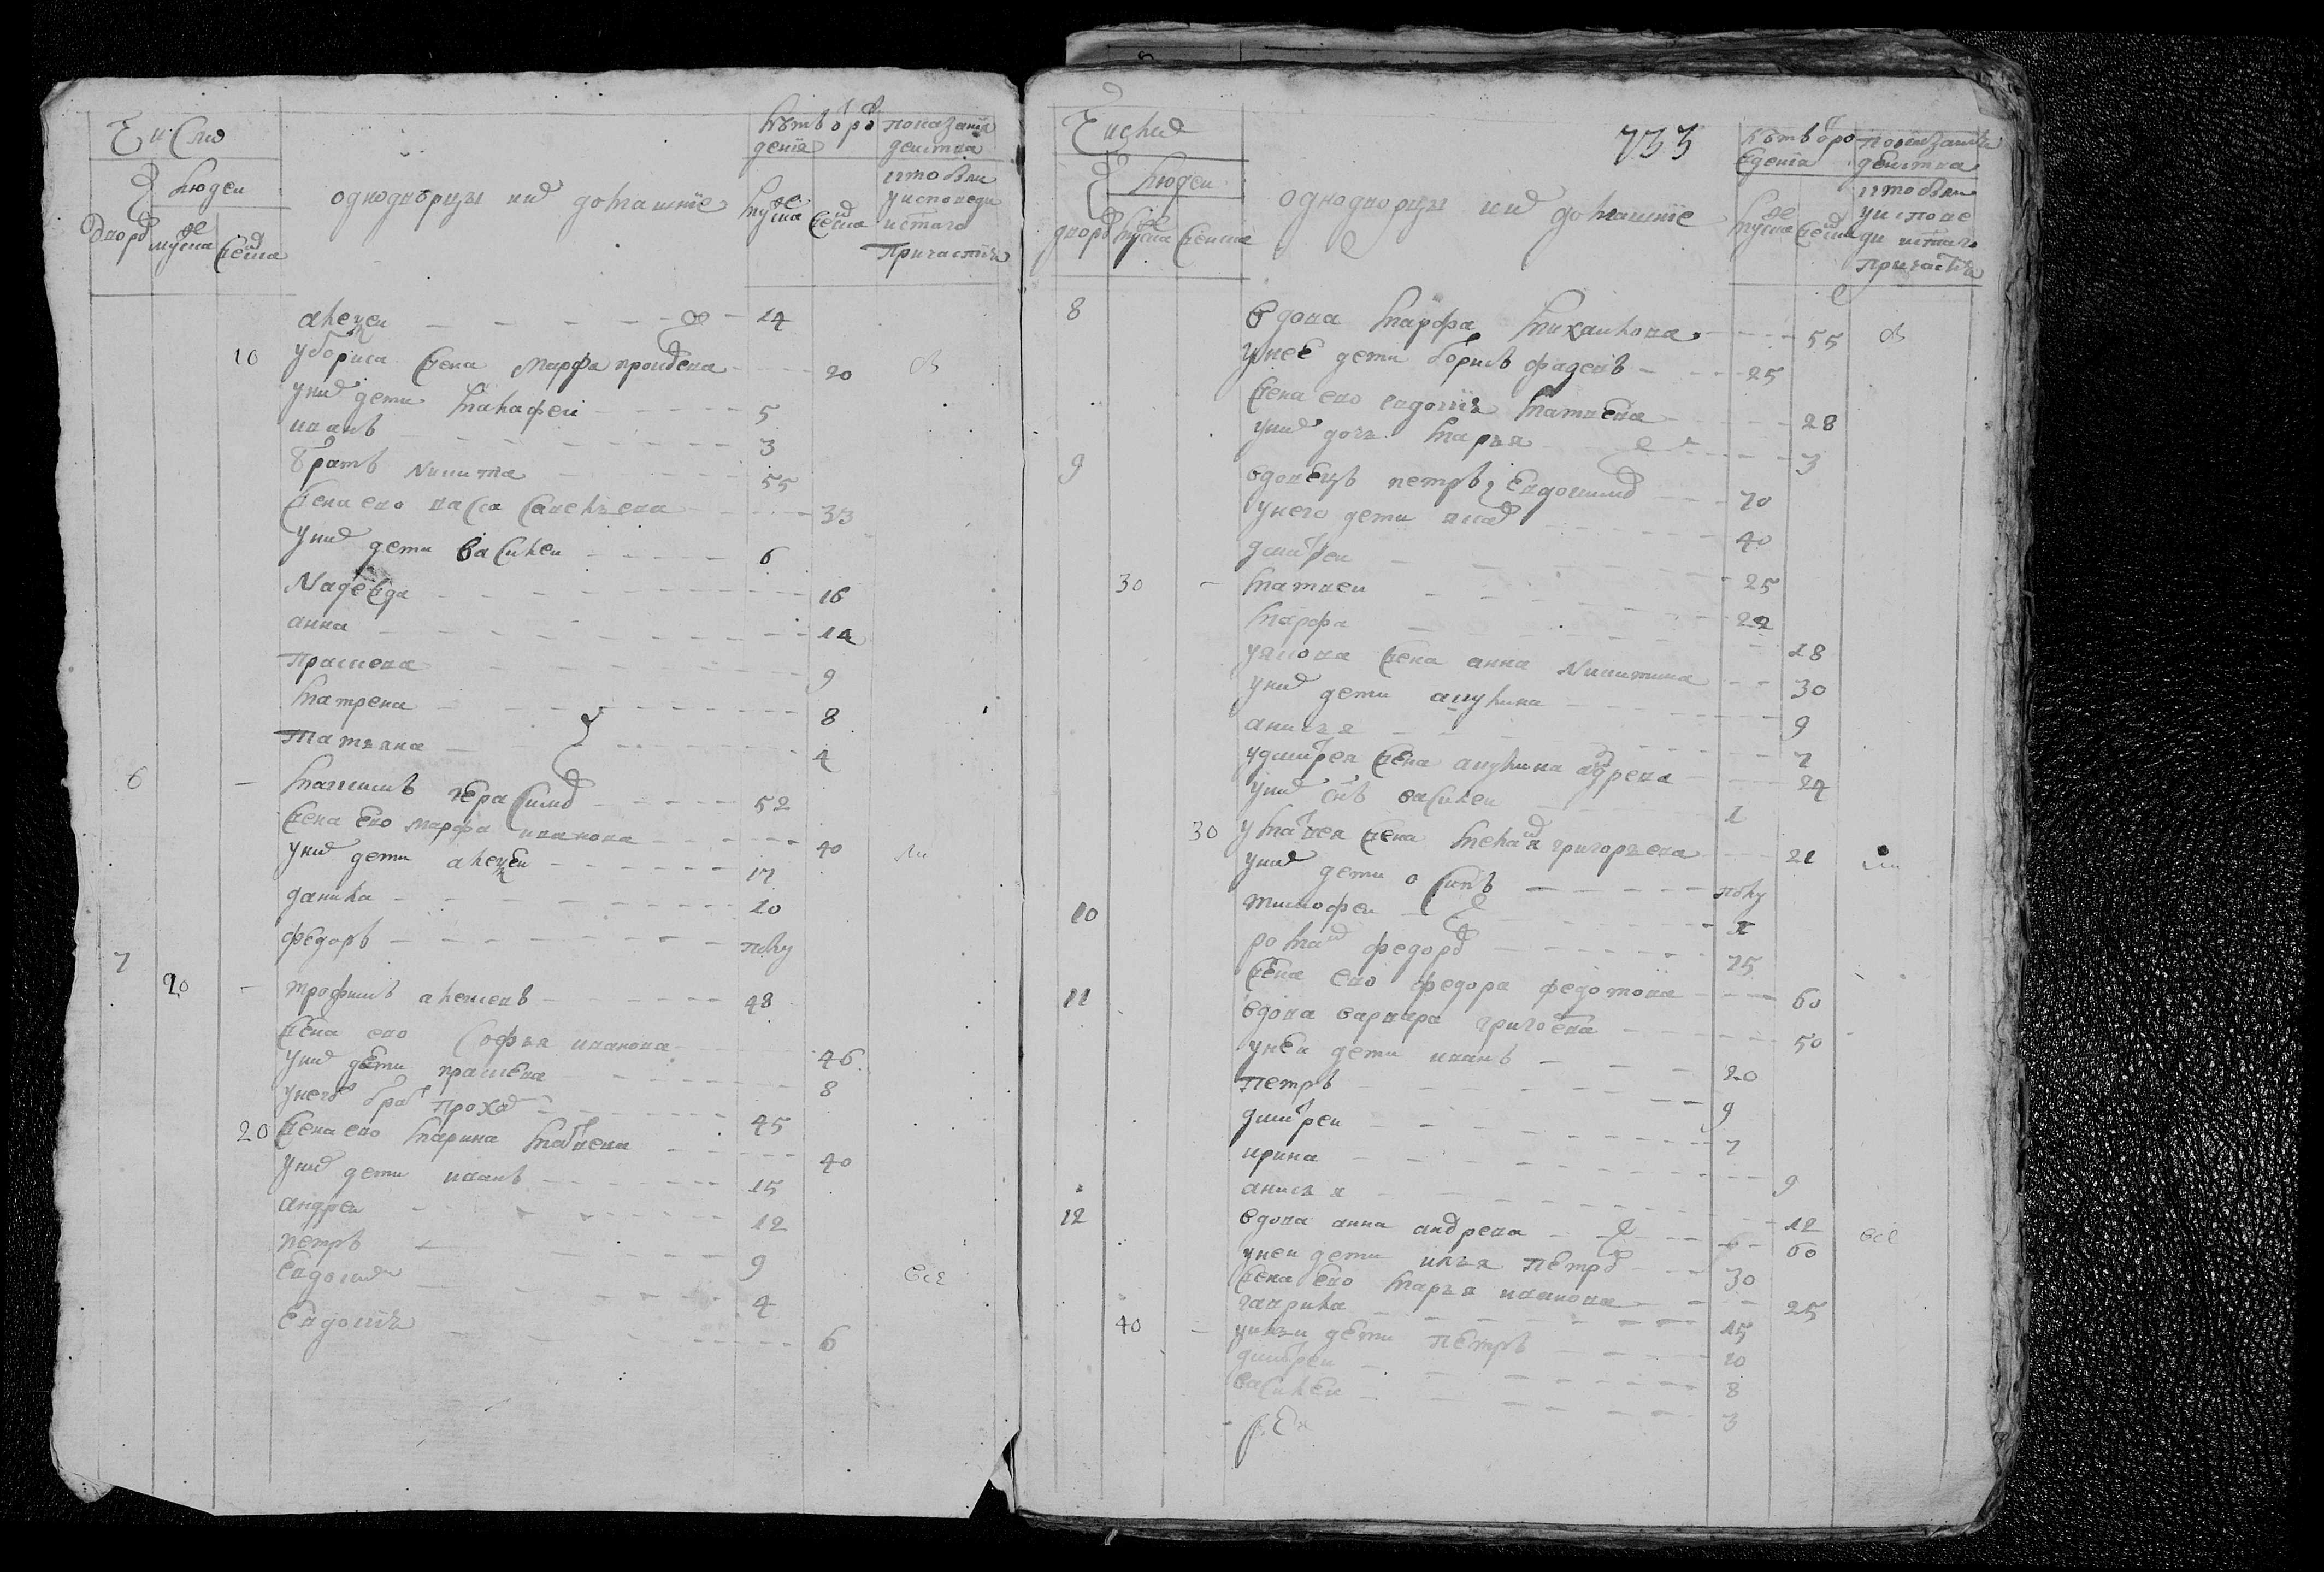 Число
людеи
дворов
мужска
женска
однодворцы и их домашние
лет от рождение
мужска
женска
показание действа кто был у исповеди и святаго причастия
алексеи 14
10 у бориса жена марфа 20
у них дети макафеи 5
иванъ 3
братъ никита 55
жена ево васса савельева 33
у них дети василеи 6
надежда 16
анна 14
прасковя 9
матрена 8
татьяна 4
6 максимъ герасимов 52
жена ево марфа иванова 40
у них дети алексеи 17
данила 10
федоръ полу
7 20 трофимъ алексеевъ 48
жена ево софья иванова 46
у них дети прасковя 8
у него брат прохор 45
20 жена ево марина матвеева 40
у них дети иванъ 15
андреи 12
петръ 9
евдоким 4
евдокия 6
все
Число
людеи
дворов
мужска
женска
однодворцы и их домашние
733
лет от рождения
мужска
женска
показание действа кто был у исповеди и святаго причастия
8 вдова марфа михаилова 55
у нее дети борисъ фадеевъ 25
жена ево евдокия матвеева 28
у них дочь марья 3
9 вдовецъ петръ евдокимов 70
у него дети яков 40
дмитреи 25
30 матвеи 22
марфа 18
у якова жена анна никитина 30
у них дети акулина 9
анисья 7
у дмитрея жена акулина андреева 24
у них сынъ василеи 1
30 у матвея жена меланя григорьева 21
у них дети осипъ полу
тимофеи
10 роман федоров 75
жена ево федора федотова 60
11 вдова варвара григоева 50
у неи дети иванъ 20
петръ 9
дмитреи 7
ирина 9
анисья 12
12 вдова анна андреева 60
все
у неи дети илья петров 30
жена ево марья иванова 25
гаврила 15
40 у ильи дети петръ 10
дмитреи 8
василеи 3